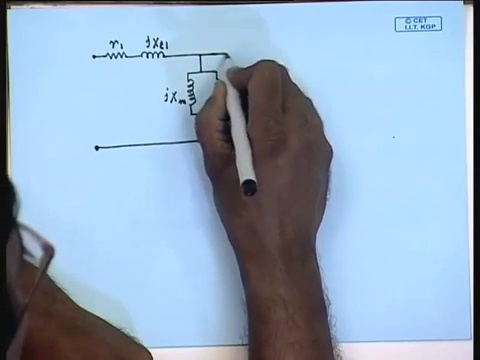 © CET
I.I.T. KGP
r₁ jxₑ₁
jXₘ